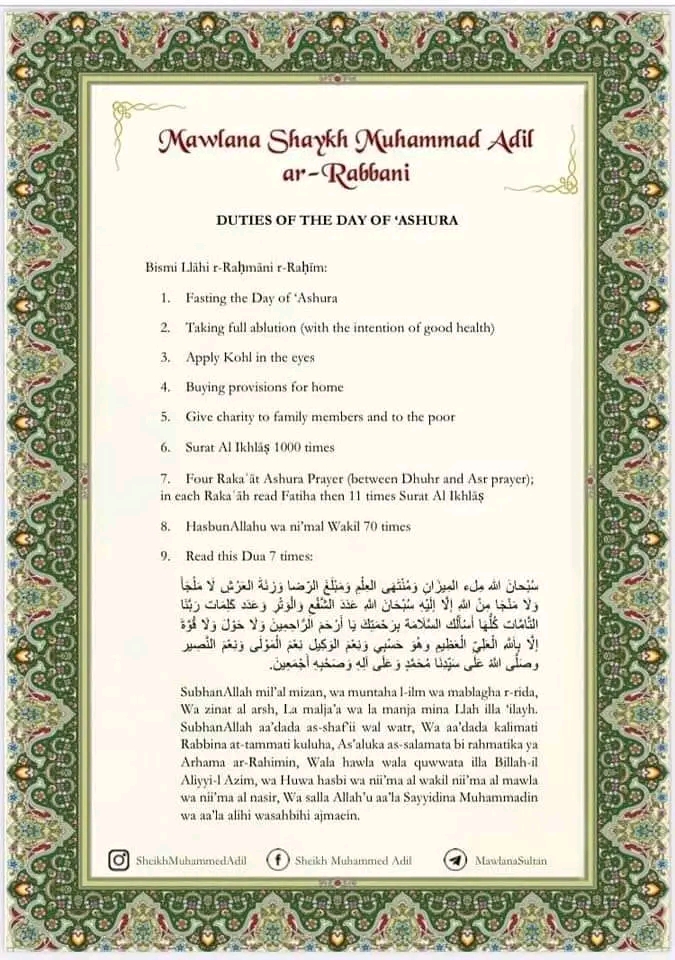 Mawlana Shaykh Muhammad Adil
ar-Rabbani
DUTIES OF THE DAY OF ‘ASHURA
Bismi Llāhi r-Raḥmāni r-Raḥīm:
1. Fasting the Day of ‘Ashura
2. Taking full ablution (with the intention of good health)
3. Apply Kohl in the eyes
4. Buying provisions for home
5. Give charity to family members and to the poor
6. Surat Al Ikhlāṣ 1000 times
7. Four Rakaʿāt Ashura Prayer (between Dhuhr and Asr prayer);
in each Rakaʿāh read Fatiha then 11 times Surat Al Ikhlāṣ
8. HasbunAllahu wa ni’mal Wakil 70 times
9. Read this Dua 7 times:
سُبْحانَ الله مِلء المِيزانِ وَمُنْتَهَى العِلْمِ وَمَبْلَغَ الرِّضا وَزِنَةَ العَرْشِ لَا مَلْجَأَ
وَلَا مَنْجَا مِنْ اللهِ إلَّا إلَيْهِ سُبْحَانَ اللهِ عَدَدَ الشَّفْعِ وَالْوِتْرِ وَعَدَد كَلِمَات رَبِّنَا
التَّامَّات كُلِّهَا أَسْأَلُك السَّلَامَةَ بِرَحْمَتِكَ يَا أرْحَمَ الرَّاحِمِينَ وَلَا حَوْلَ وَلَا قُوَّةَ
إلَّا بِاَللهِ الْعَلِيِّ الْعَظِيمِ وَهُوَ حَسْبِي وَنِعْمَ الْوَكِيلُ نِعْمَ الْمَوْلَى وَنِعْمَ النَّصِير
وصَلَّى اللهُ عَلَى سَيِّدِنَا مُحَمَّدٍ وَعَلَى آلِهِ وَصَحْبِهِ أَجْمَعِينَ.
SubhanAllah mil’al mizan, wa muntaha l-ilm wa mablagha r-rida,
Wa zinat al arsh, La malja’a wa la manja mina Llah illa ‘ilayh.
SubhanAllah aa’dada as-shaf’ii wal watr, Wa aa’dada kalimati
Rabbina at-tammati kuluha, As’aluka as-salamata bi rahmatika ya
Arhama ar-Rahimin, Wala hawla wala quwwata illa Billah-il
Aliyyi-l Azim, wa Huwa hasbi wa nii’ma al wakil nii’ma al mawla
wa nii’ma al nasir, Wa salla Allah’u aa’la Sayyidina Muhammadin
wa aa’la alihi wasahbihi ajmaein.
SheikhMuhammedAdil Sheikh Muhammed Adil MawlanaSultan